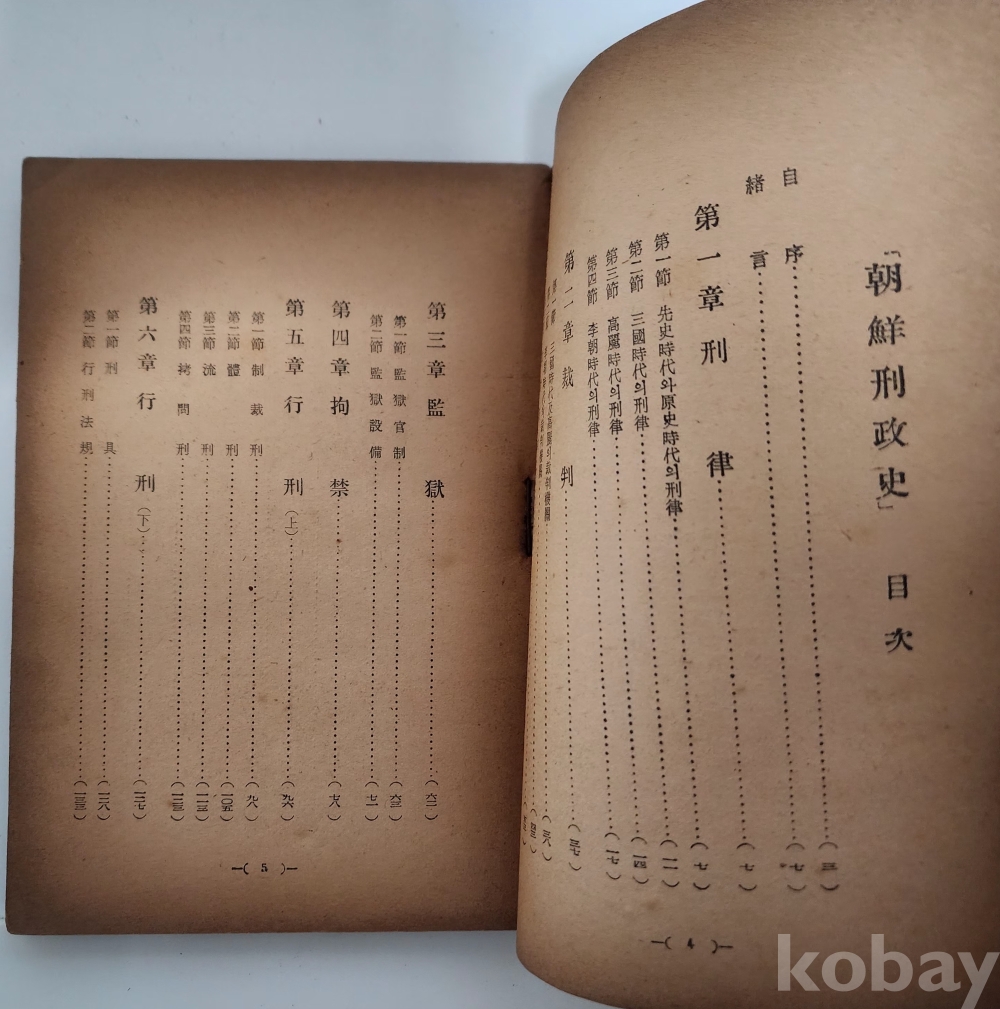 「朝鮮刑政史」 目次
自序 (三)
緒言 (七)
第一章 刑律 (七)
第一節 先史時代와原史時代의刑律
第二節 三國時代의刑律 (一四)
第三節 高麗時代의刑律 (一七)
第四節 李朝時代의刑律
第二章 裁判 (三七)
三國時代及高麗의裁判機關 (三八)
—( 4 )—
第三章 監獄 (六二)
第一節 監獄官制 (六三)
第二節 監獄設備 (七二)
第四章 拘禁 (七八)
第五章 行刑(上) (九六)
第一節 制裁刑 (九八)
第二節 體刑 (一〇五)
第三節 流刑 (一一三)
第四節 拷問刑
第六章 行刑(下) (一三七)
第一節 刑具 (一三八)
第二節 行刑法規
—( 5 )—
kobay